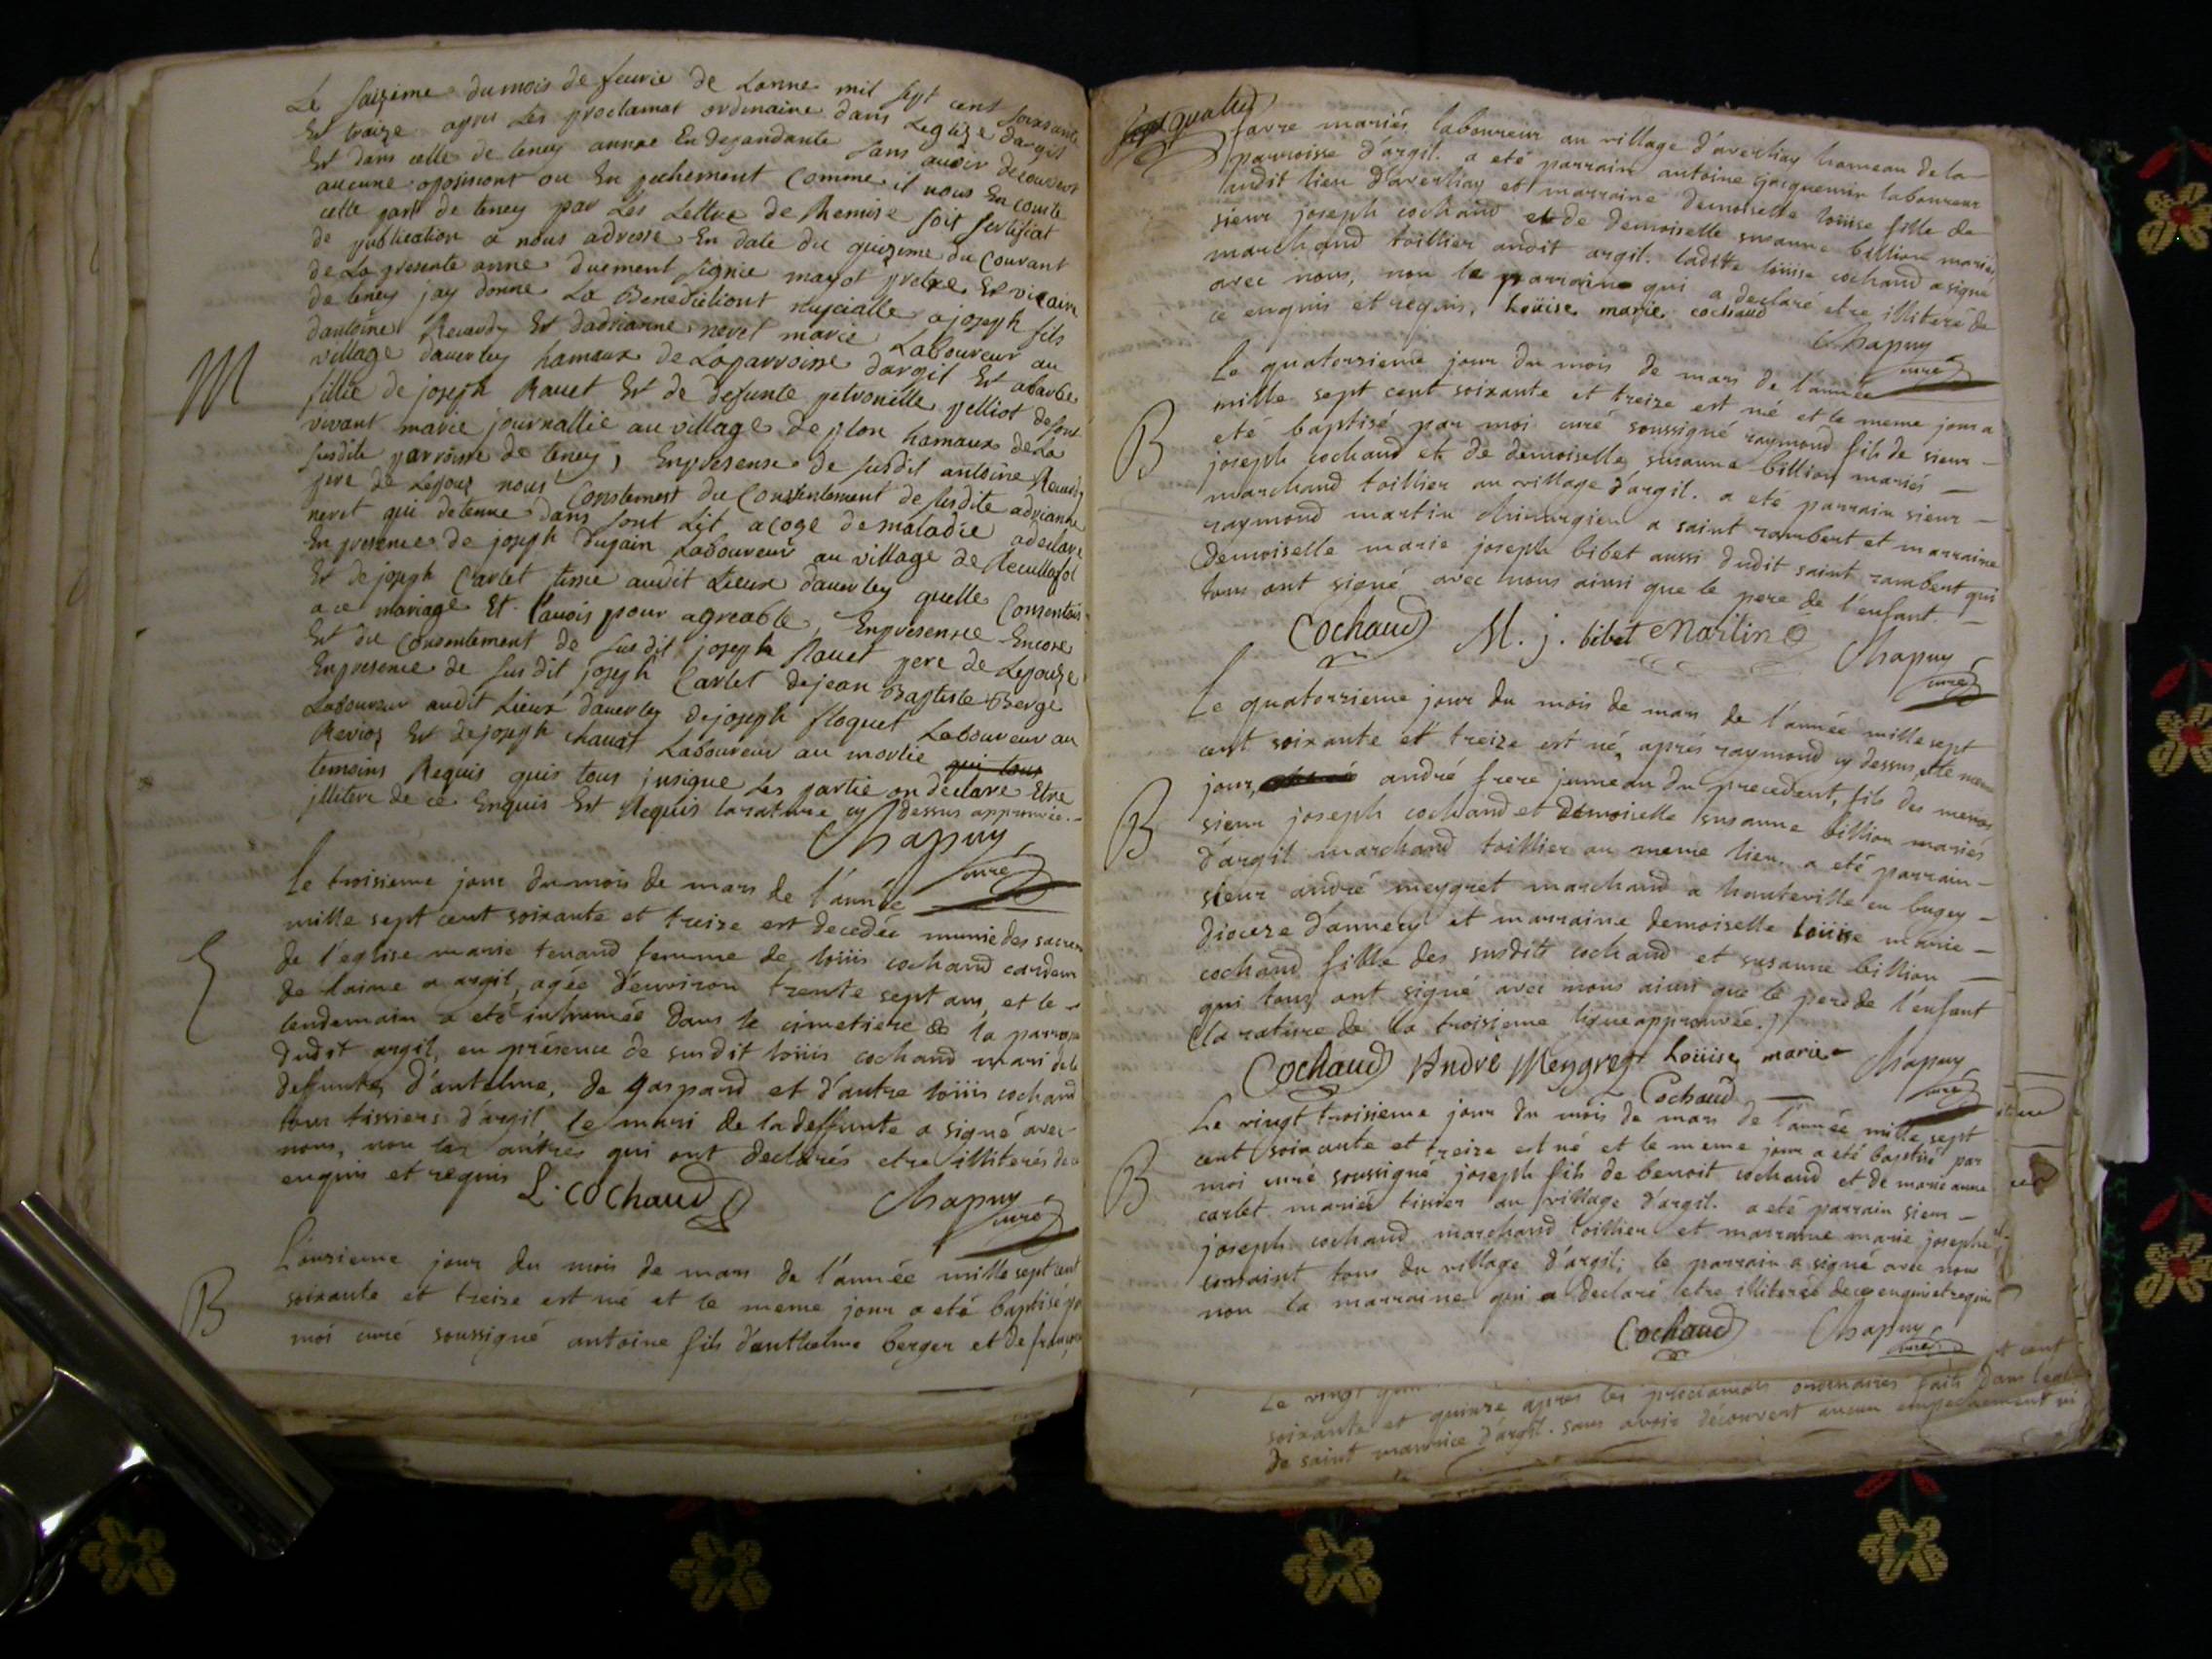 Le saizieme du mois de feurie de Lanne mil sept cent soixante
Et traize apres Les proclamat ordinaire dans Leglize dargil
Et dans celle de teney annxe En dependante sans avoir decouvert
aucune oposisiont ou En pechement Comme il nous En conste
celle part de teney par Les Lettre de Remise soit sertifiat
de publication a nous adresse En date du quizieme du Courant
de La presente anne duement signie mayot pretre Et vicaire
de teney jay donne La Benedictiont nupcialle a joseph fils
dantoine Et dadrianne nevet marie Laboureur au
M
village daverley hamaux de La parroisse dargil Et abarbe
fillie de joseph Ravet Et de defunte petronille pelliot de sont
vivant marie journallie au village de plon hamaux de La
susdite parroisse de teney, En presense de susdit antoine
pere de Lepoux nous Constement du Consentement de susdite adrianne
nevet qui detenue dans sont Lit acoge de maladie a declare
En presence de joseph dujain Laboureur au village de
Et de joseph Carlet tissie audit Lieux daverley quelle Consentais
a ce mariage Et Lavois pour agreable, En presensce Encore
Et du Consentement de sus dit joseph Ravet pere de Lepouze
En presence de sus dit joseph Carlet de jean Baptiste Berge
Laboureur audit Lieux daverley de joseph floquet Laboureur au
Reviox Et de joseph chavat Laboureur au mortie qui tous
temoins Requis quis tous jusique Les partie on declare Etre
jllitere de ce Enquis Est Requis la rature cy dessus approuvée.
Chapuy
curé
Le troisieme jour du mois de mars de l'année
mille sept cent soixante et treize est decedée munie des sacrem
de l'eglise marie tenand femme de loüis cochand cardeur
de laine a argil, agée d'environ trente sept ans, et le
lendemain a eté inhumée dans le cimetiere de la parroi
dudit argil, en présence de susdit loüis cochand mari de la
deffunte, d'antelme, de gaspard et d'autre loüis cochand
tous tissiers d'argil, le mari de la deffunte a signé avec
nous, non les autres qui ont declarés etre illiterés de ce
enquis et requis
L. Cochaud
Chapuy
curé
L'onzieme jour du mois de mars de l'année mille sept cent
B
soixante et treize est né et le meme jour a eté baptisé pa
moi curé soussigné antoine fils d'anthelme berger et de
favre mariés laboureur au village d'averliay hameau de la
parroisse d'argil. a eté parrain antoine jacquemin laboureur
audit lieu d'averliay et marraine demoiselle loüise fille de
sieur joseph cochaud et de demoiselle susanne billion mariés
marchand toillier audit argil. ladite loüise cochaud a signé
avec nous, non le parrain qui a declaré etre illiteré de
ce enquis et requis, Loüise marie cochaud
Chapuy
curé
Le quatorzieme jour du mois de mars de l'année
mille sept cent soixante et treize est né et le meme jour a
B
eté baptisé par moi curé soussigné raymond fils de sieur
joseph cochaud et de demoiselle susanne billion mariés
marchand toillier au village d'argil. a eté parrain sieur
raymond martin chirurgien a saint rambert et marraine
demoiselle marie joseph bibet aussi dudit saint rambert qui
tous ont signé avec nous ainsi que le pere de l'enfant.
Cochaud M. j. bibet Martin
Chapuy
curé
Le quatorzieme jour du mois de mars de l'année mille sept
cent soixante et treize est né, aprés raymond cy dessus, et le meme
jour, andré frere jumeau du precedent, fils des memes
B
sieur joseph cochaud et demoiselle susanne billion mariés
d'argil marchand toillier au meme lieu. a eté parrain
sieur andré meygret marchand a hauteville en bugey
diocese d'annecy et marraine demoiselle loüise marie
cochaud fille des susdits cochaud et susanne billion
qui tous ont signé avec nous ainsi que le pere de l'enfant
(la rature de la troisieme ligne approuvée.)
Cochaud André Meygret Loüise marie
Cochaud
Chapuy
curé
Le vingt troisieme jour du mois de mars de l'année mille sept
cent soixante et treize est né et le meme jour a eté baptisé par
B
moi curé soussigné joseph fils de benoit cochaud et de marie anne
carlet mariés tissier au village d'argil. a eté parrain sieur
joseph cochaud marchand toillier et marraine marie josephe
tous du village d'argil; le parrain a signé avec nous
non la marraine qui a declaré etre illiterée de ce enquis et requis
Cochaud
Chapuy
curé
Le vingt
soixante et quinze apres les proclamats ordinaires faits dans
de saint maurice d'argil. sans avoir découvert aucun empechement ni